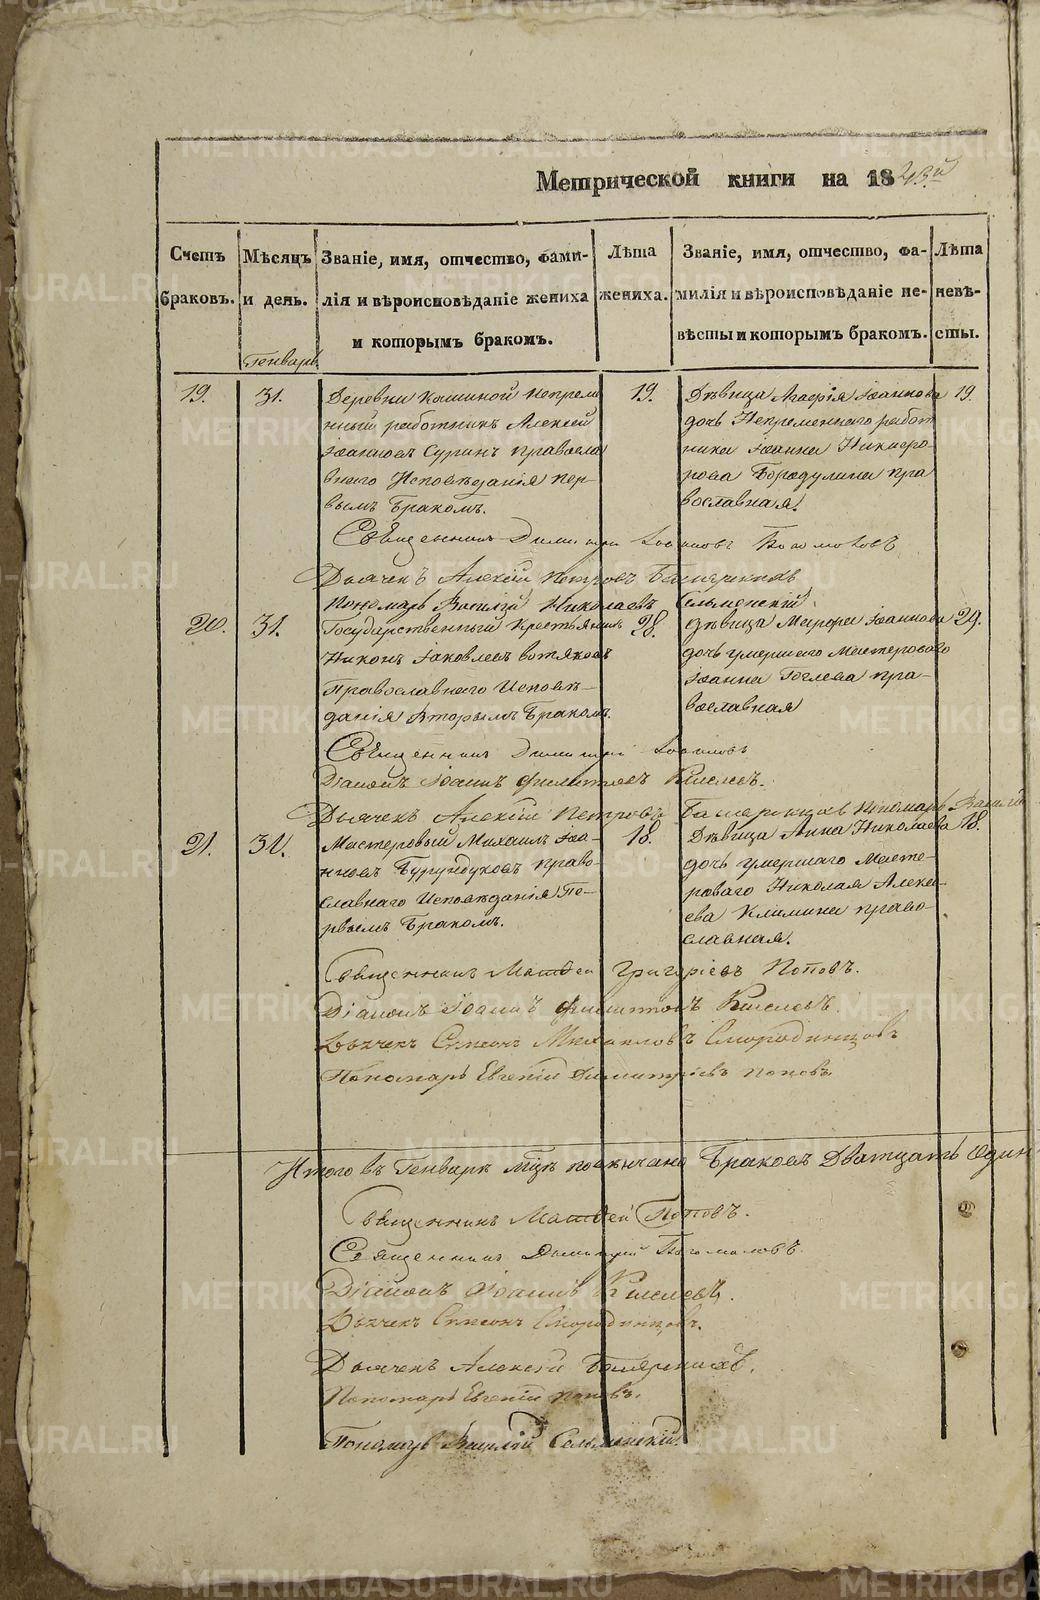 Метрической книги на 1843й
Счетъ браковъ.
Мѣсяцъ и день.
Званіе, имя, отчество, фами-
лія и вѣроисповѣданіе жениха
и которымъ бракомъ.
Лѣта жениха.
Званіе, имя, отчество, фа-
милія и вѣроисповѣданіе не-
вѣсты и которымъ бракомъ.
Лѣта невѣ-
сты.
Генварь
19.
31.
Деревни Кашиной непреме
нный работникъ Алексей
Іоанновъ Суринъ правосла
внаго Исповѣданія пер-
вымъ Бракомъ.
19.
Дѣвица Агафія Іоаннова
дочь Непременнаго работ
ника Іоанна Никифо-
рова Бородулина пра
вославная.
19.
Священникъ Димитрій Іоанновъ Богомоловъ
Дьячекъ Алексій Петровъ
Пономарь Василій Николаевъ Сельменскій.
20.
31.
Государственный Крестьянинъ
Никонъ Іаковлевъ Вотяковъ
Православнаго Исповѣ-
данія Вторымъ Бракомъ.
28.
Дѣвица Марфа Іоаннова
дочь умершаго Мастероваго
Іоанна Гоглева пра-
вославная
29.
Священникъ Димитрій
Діаконъ Іоаннъ Филитовъ Киселевъ.
Дьячекъ Алексій Петровъ Пономарь Василій
21.
31.
Мастеровый Михаилъ Іоа-
нновъ Бурундуковъ право-
славнаго Исповѣданія Пе-
рвымъ Бракомъ.
18.
Дѣвица Анна Николаева
дочь умершаго Масте-
роваго Николая Алексе-
ева Климина право-
славная.
18.
Священникъ Матвей Григоріевъ Поповъ.
Діаконъ Іоаннъ Киселевъ.
Дьячекъ Симеонъ Михаиловъ Смородинцовъ
Пономарь Евгеній Димитріевъ Поповъ
Итого въ Генварѣ мцѣ повѣнчано Браковъ Двадцать Одинъ
Священникъ Матвей Поповъ.
Священникъ Димитрій Богомоловъ.
Діаконъ Іоаннъ Киселевъ.
Дьячекъ Симеонъ Смородинцовъ.
Дьячекъ Алексій
Пономарь Евгеній Поповъ.
Пономарь Василій Сельменскій.
METRIKI.GASO-URAL.RU